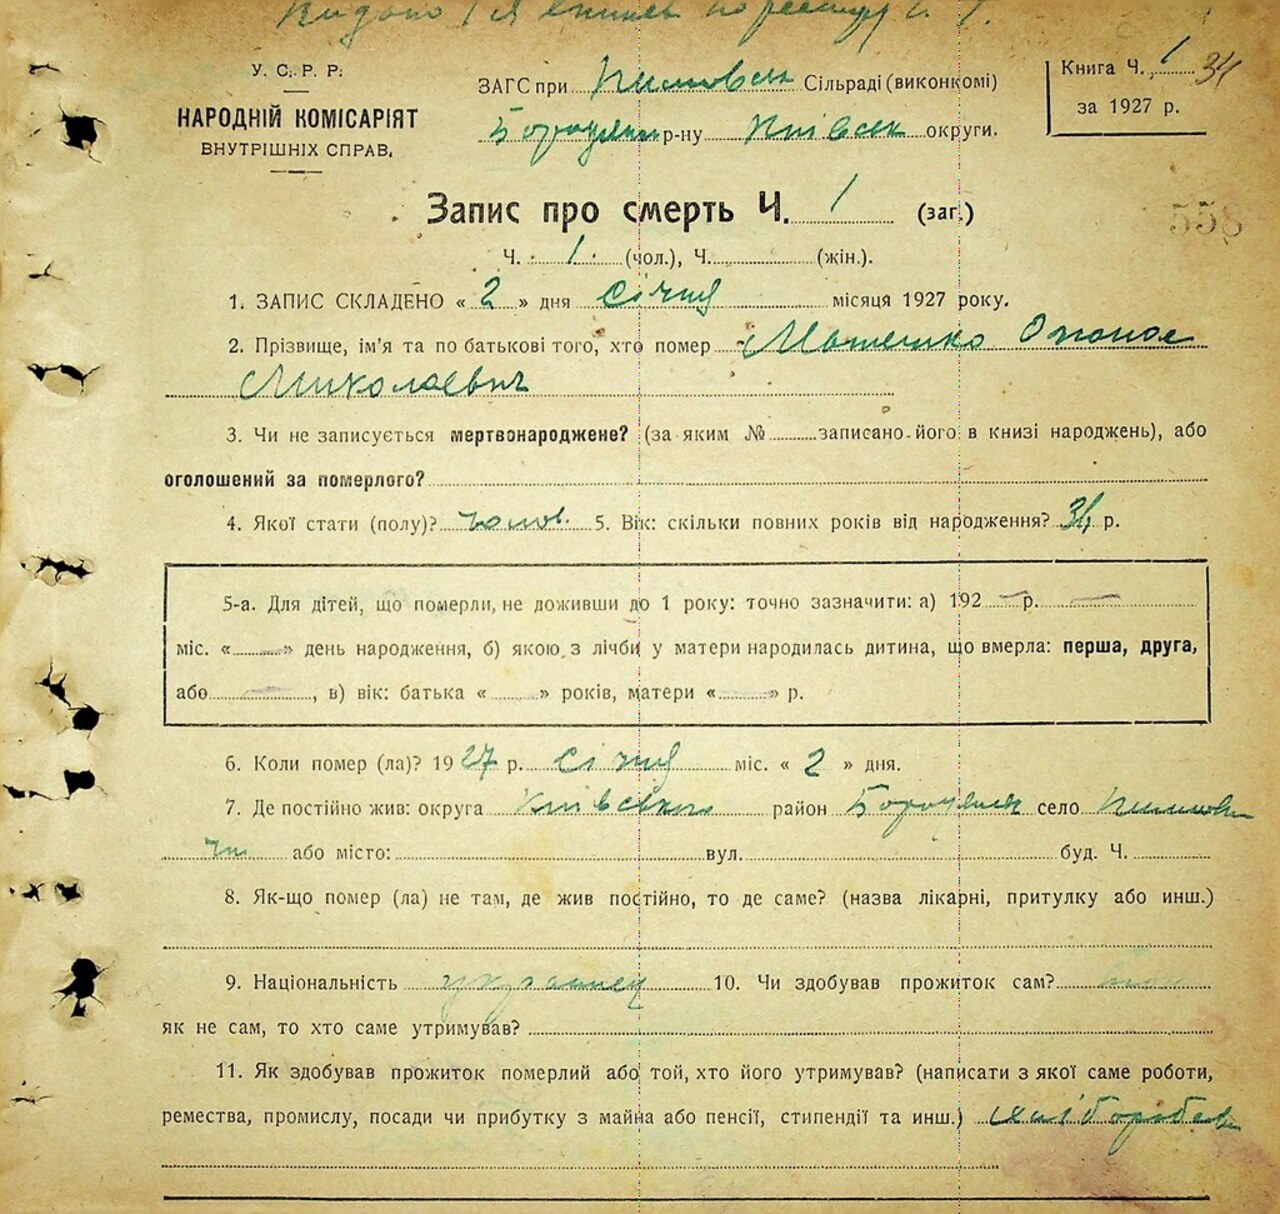 Видано
У. С. Р. Р.
НАРОДНІЙ КОМІСАРІЯТ
ВНУТРІШНІХ СПРАВ.
ЗАГС при Пилипов Сільраді (виконкомі)
Бородянк р-ну Київськ округи.
Книга Ч. 1 34
за 1927 р.
Запис про смерть Ч. 1 (заг.)
558
Ч. 1. (чол.), Ч. (жін.).
1. ЗАПИС СКЛАДЕНО « 2 » дня січня місяця 1927 року.
2. Прізвище, ім'я та по батькові того, хто помер Опонас
Миколаевич
3. Чи не записується мертвонароджене? (за яким № записано його в книзі народжень), або
оголошений за померлого?
4. Якої стати (полу)? чолов. 5. Вік: скільки повних років від народження? 34 р.
5-а. Для дітей, що померли, не доживши до 1 року: точно зазначити: а) 192 — р. —
міс. « — » день народження, б) якою з лічби у матери народилась дитина, що вмерла: перша, друга,
або — , в) вік: батька « — » років, матери « — » р.
6. Коли помер (ла)? 1927 р. січня міс. « 2 » дня.
7. Де постійно жив: округа Київська район Бородянк село
або місто: вул. буд. Ч.
8. Як-що помер (ла) не там, де жив постійно, то де саме? (назва лікарні, притулку або инш.)
9. Національність українец 10. Чи здобував прожиток сам?
як не сам, то хто саме утримував?
11. Як здобував прожиток померлий або той, хто його утримував? (написати з якої саме роботи,
ремества, промислу, посади чи прибутку з майна або пенсії, стипендії та инш.)